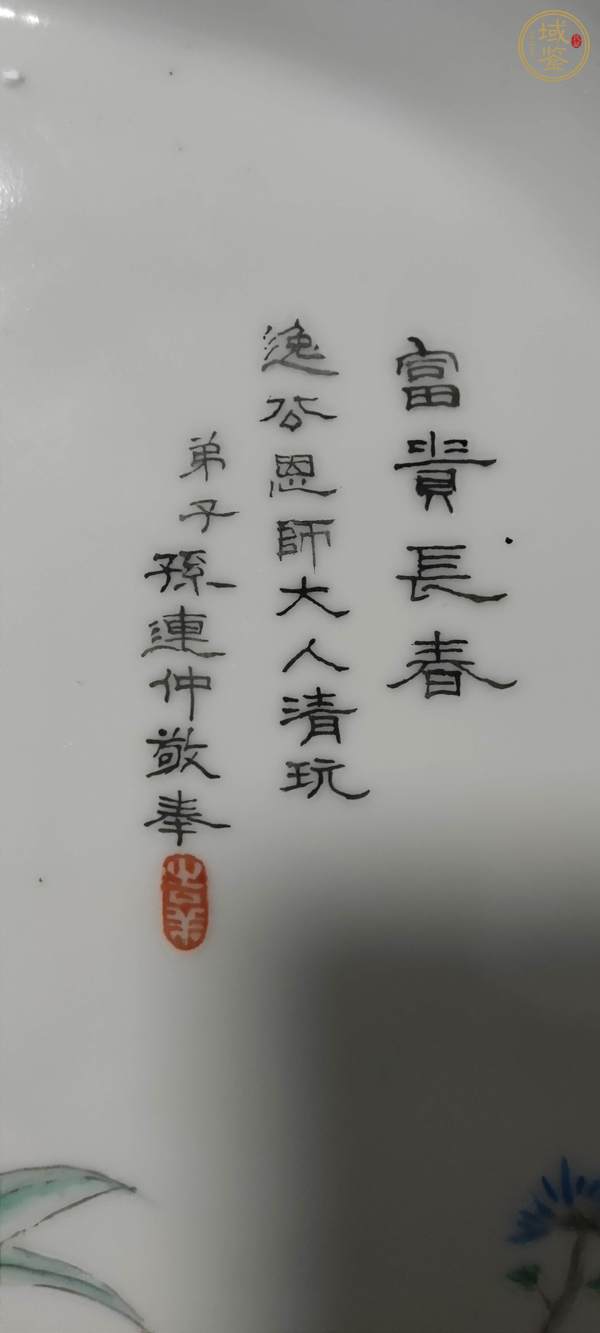 富貴長春
逸公恩師大人清玩
弟子孫連仲敬奉
吉羊
域鉴